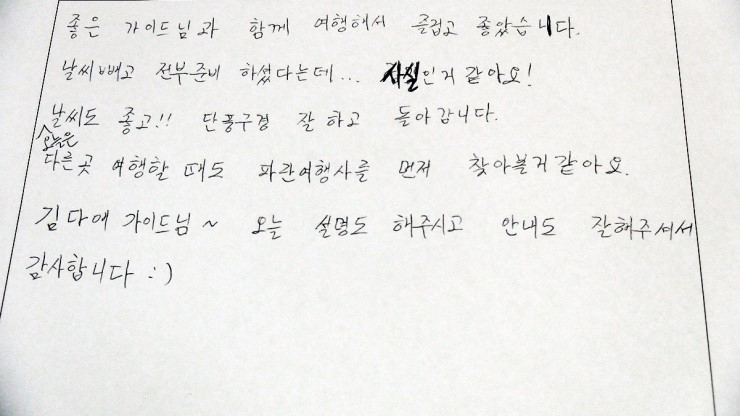 좋은 가이드님과 함께 여행해서 즐겁고 좋았습니다.
날씨빼고 전부준비 하셨다는데... 사실인거 같아요!
날씨도 좋고!! 단풍구경 잘 하고 돌아갑니다.
오늘은
다른곳 여행할 때도 파란여행사를 먼저 찾아볼거같아요.
김다애 가이드님~ 오늘 설명도 해주시고 안내도 잘해주셔서
감사합니다 :)